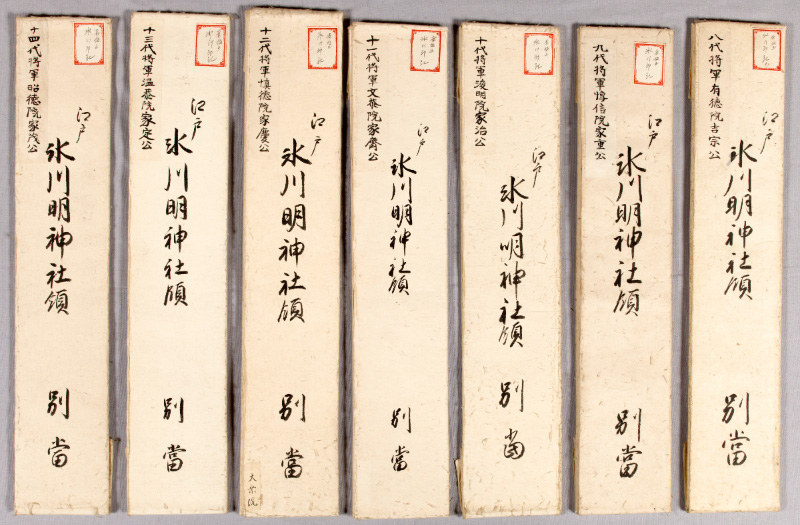 八代将軍有徳院吉宗公
江戸
氷川明神社領
別當
九代将軍惇信院家重公
江戸
氷川明神社領
別當
十代将軍浚明院家治公
江戸
氷川明神社領
別當
十一代将軍文恭院家齊公
江戸
氷川明神社領
別當
十二代将軍慎徳院家慶公
江戸
氷川明神社領
別當
十三代将軍温恭院家定公
江戸
氷川明神社領
別當
十四代将軍昭徳院家茂公
江戸
氷川明神社領
別當